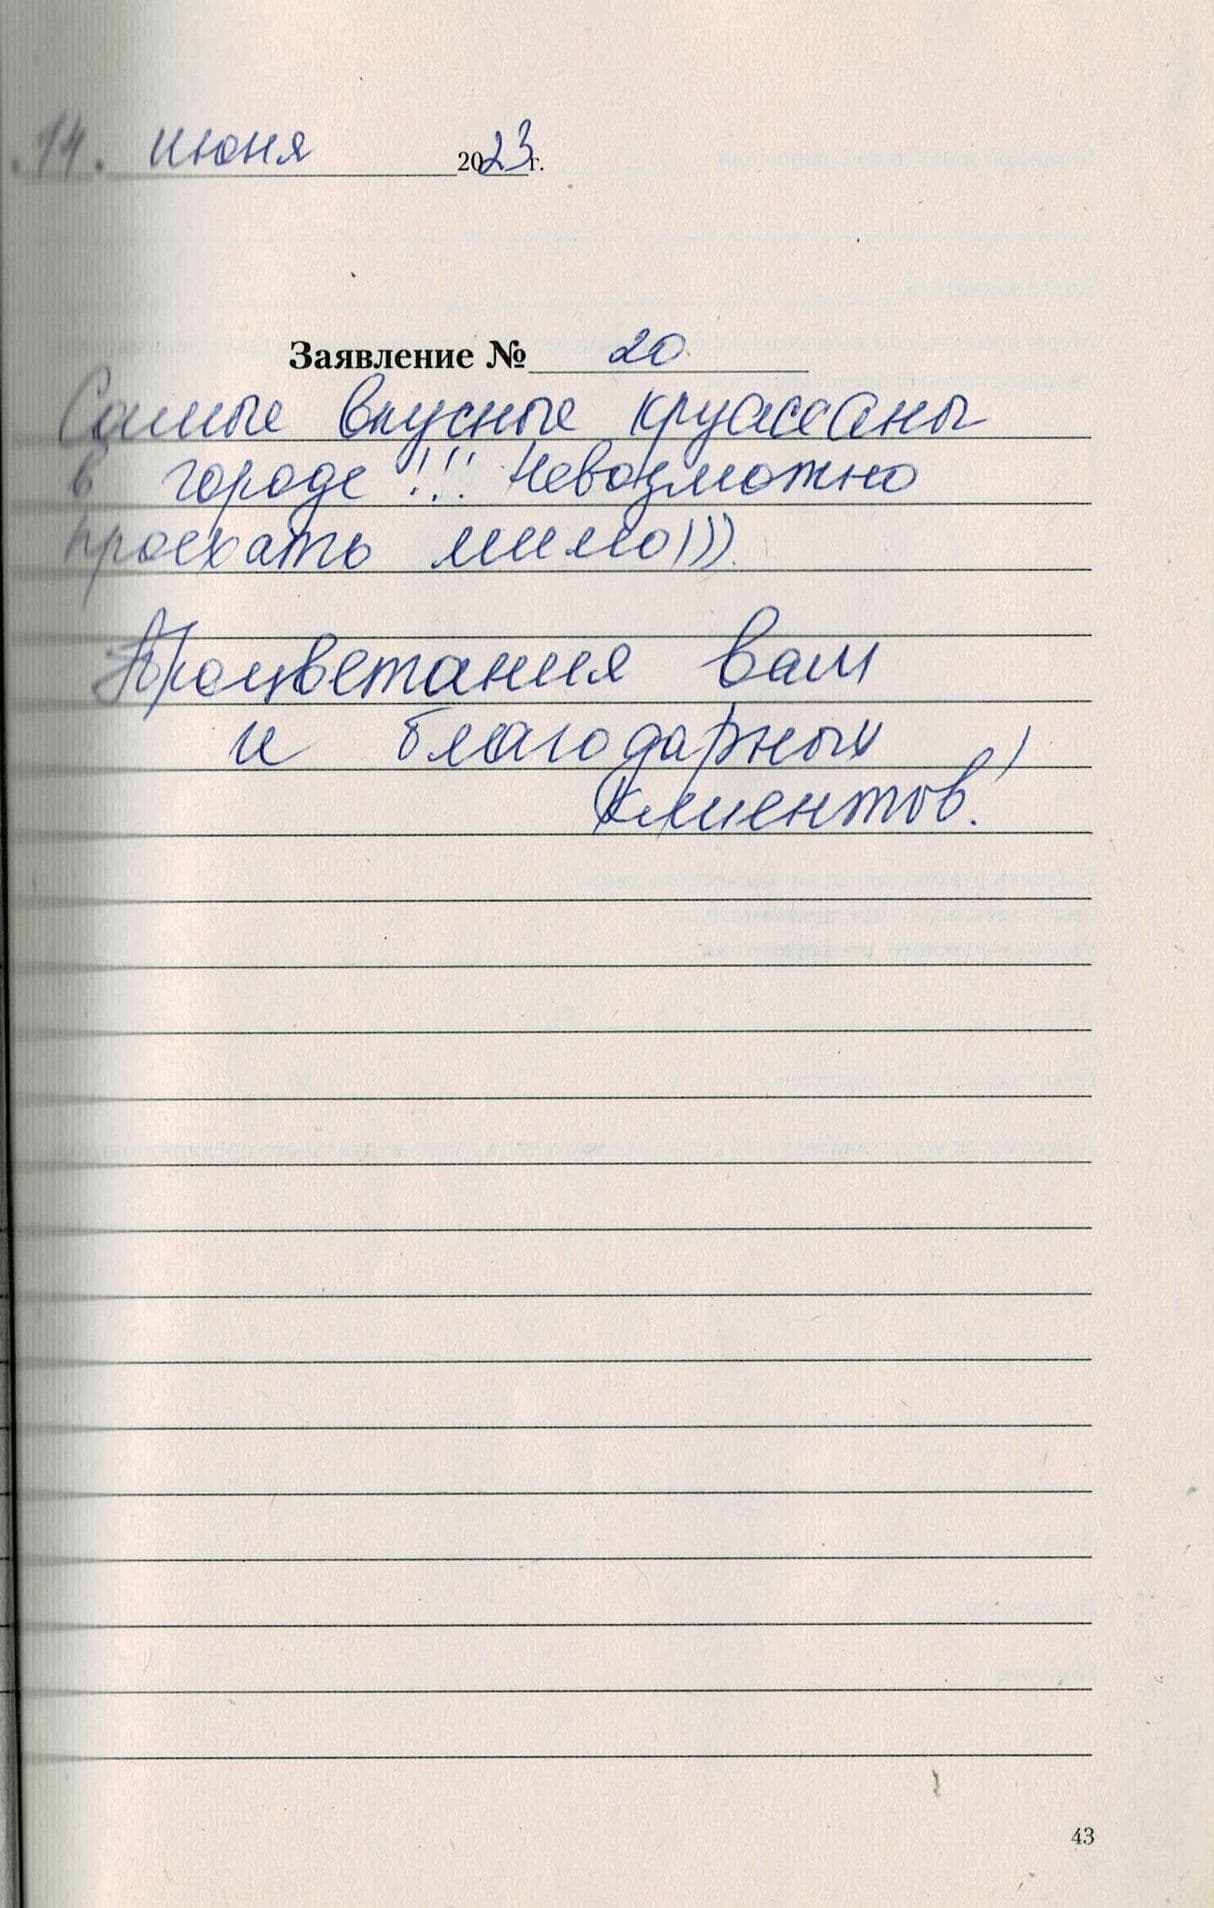 14. июня 2023 г.
Заявление № 20
Самые вкусные круассаны
в городе!!! Невозможно
проехать мимо)))
Процветания вам
и благодарных
клиентов!
43